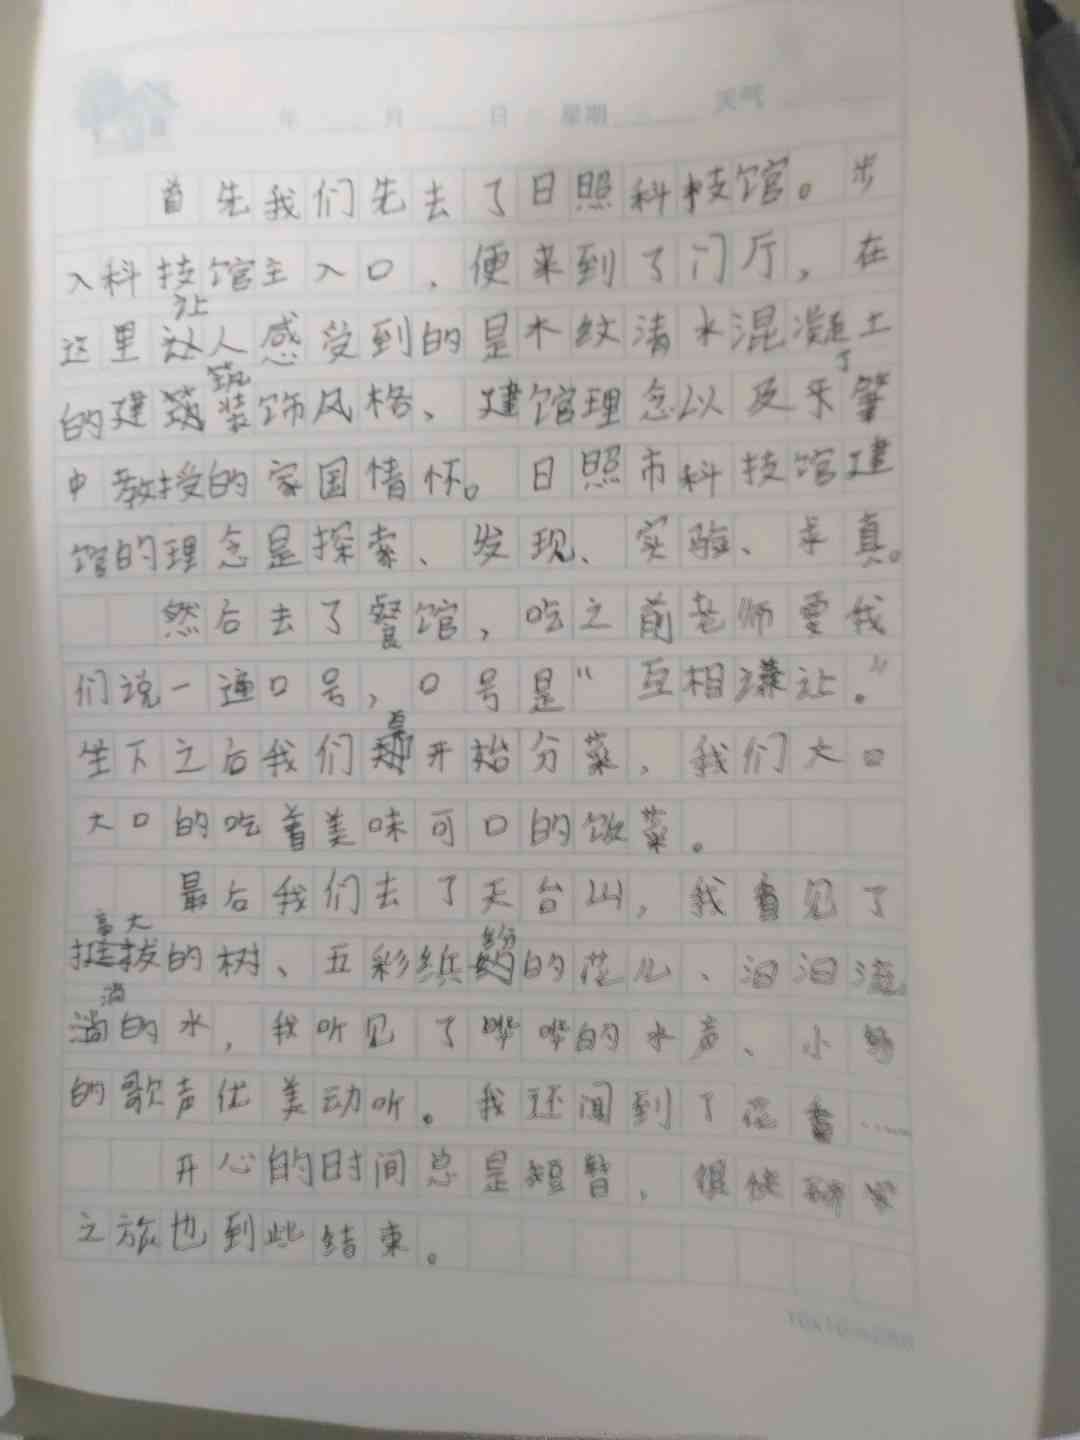 年 月 日 星期 天气
首先我们先去了日照科技馆。步
入科技馆主入口，便来到了门厅，在
这里让人感受到的是木纹清水混凝土
的建筑装饰风格、建馆理念以及乐
中教授的家国情怀。日照市科技馆建
馆的理念是探索、发现、实验、求真。
然后去了餐馆，吃之前老师要我
们说一通口号，口号是“互相谦让。”
坐下之后我们就开始分菜，我们大口
大口的吃着美味可口的饭菜。
最后我们去了天台山，我看见了
高大的树、五彩缤纷的花儿、汩汩流
淌的水，我听见了哗哗的水声、小鸟
的歌声优美动听。我还闻到了花香……
开心的时间总是短暂，很快研学
之旅也到此结束。